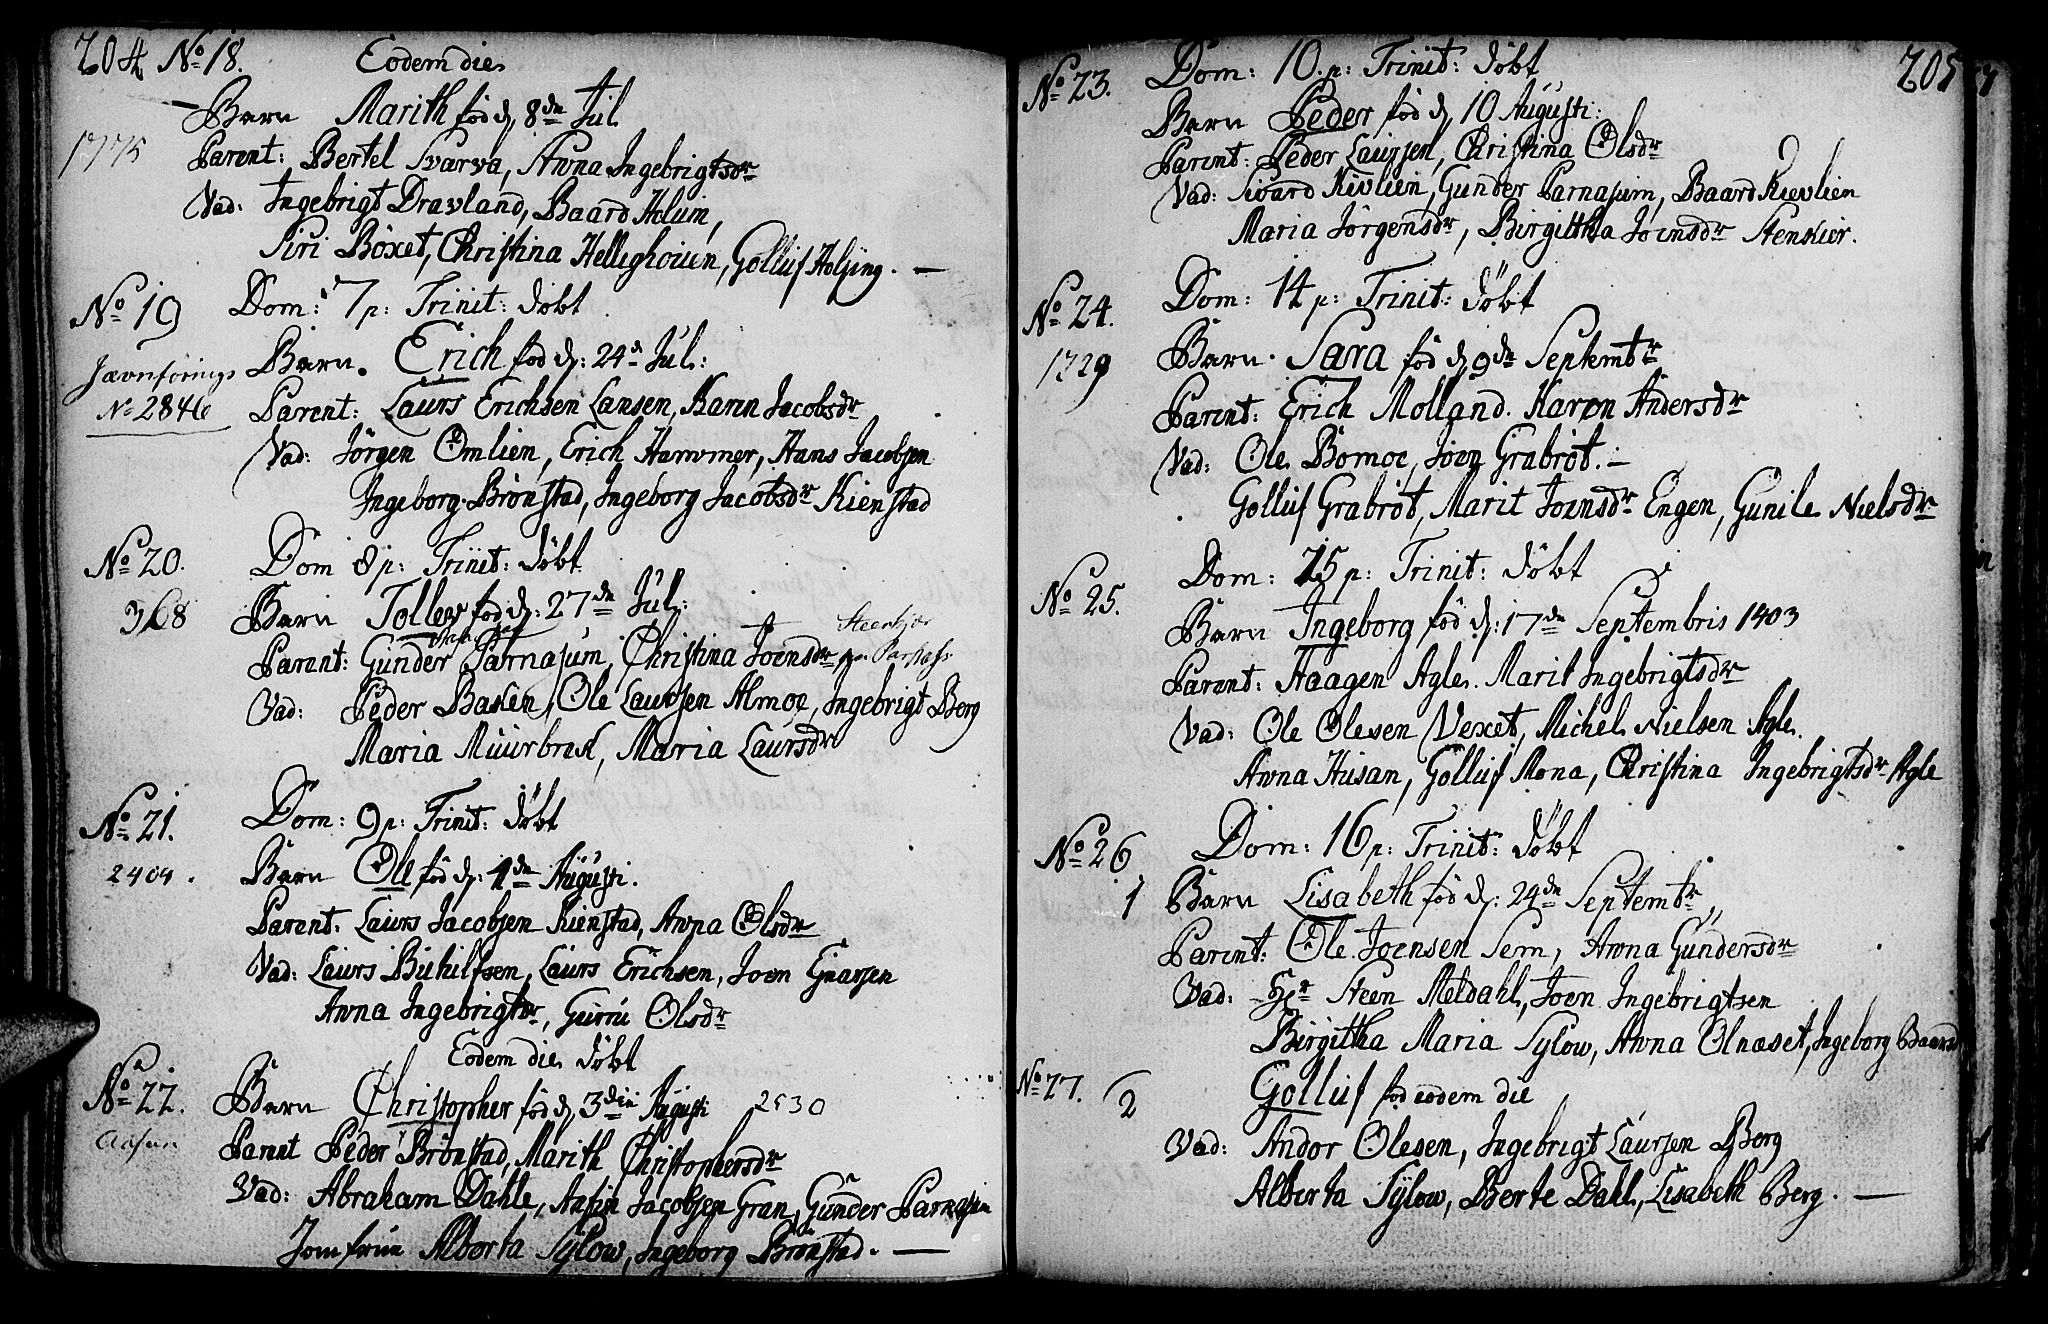 204 No 18. Eodem die
Barn Marith fød d 8de Jul
1775
Parent: Bertel Svarva, Anna Ingebrigtsdr
Vad: Ingebrigt Dravland, Baard Holum,
Siri Böxet, Christina Helleghouen, Golluf Holsing. —
No 19 Dom: 7 p: Trinit: döbt
Barn. Erich fød d: 24d Jul:
Jævnførings
No 2846
Parent: Laurs Erichsen Lansen, Karen Jacobsdr
Vad: Jörgen Omlien, Erich Hammer, Hans Jacobsen
Ingeborg Brönstad, Ingeborg Jacobsdr Kienstad
No 20. Dom 8 p: Trinit: döbt
368 Barn Tollev fød d: 27de Jul:
Parent: Gunder Parnasum, Christina Joensdr
Steenkjær
Vad: Peder Baken, Ole Laursen Almoe, Ingebrigt Berg
Maria Muurbræk, Maria Laursdr
No 21. Dom: 9 p: Trinit: döbt
2404. Barn Ole fød d: 1de Augusti.
Parent: Laurs Jacobsen Kienstad, Anna Olsdr
Vad: Laurs Erichsen, Joen
Anna Ingebrigtsdr, Gurru Olsdr
Eodem die döbt
No 22. Barn Christopher fød d 3die Augusti 2530
Aasen
Parent Peder Brönstad, Marith Christophersdr
Vad: Abraham Dahle, Anfin Jacobsen Gran, Gunder Parnasum
Jomfrue Alberta Sylow, Ingeborg Brönstad. —
205
No 23. Dom: 10. p: Trinit: döbt
Barn Peder fød d 10 Augusti.
Parent: Peder Laursen, Christina Olsdr
Vad: Sivard Kievlien, Gunder Parnasum, Baard Kievlien
Maria Jörgensdr, Birgittha Joensdr Stenkier.
No 24. Dom: 14 p: Trinit: döbt
1729 Barn Sara fød d 9de Septembr
Parent: Erich Molland. Karen Andersdr
Vad: Ole Bomoe, Joen Grabröt. —
Golluf Grabröt, Marit Joensdr Engen, Gunile Nielsdr
No 25. Dom: 15 p: Trinit: döbt
Barn Ingeborg fød d: 17de Septembris 1403
Parent: Haagen Agle. Marit Ingebrigtsdr
Vad: Ole Olesen Vexet, Michel Nielsen Agle.
Anna Husan, Golluf Mona, Christina Ingebrigtsdr Agle
No 26 Dom: 16 p: Trinit: döbt
1 Barn Lisabeth fød d: 24de Septembr
Parent: Ole Joensen Sem, Anna Gundersdr
Vad: Hr Steen Meldahl, Joen Ingebrigtsen
Birgittha Maria Sylow, Anna Olnæset, Ingeborg
No 27. 2 Golluf fød eodem die
Vad: Andor Olesen, Ingebrigt Laursen Berg
Alberta Sylow, Berte Dahl, Lisabeth Berg. —